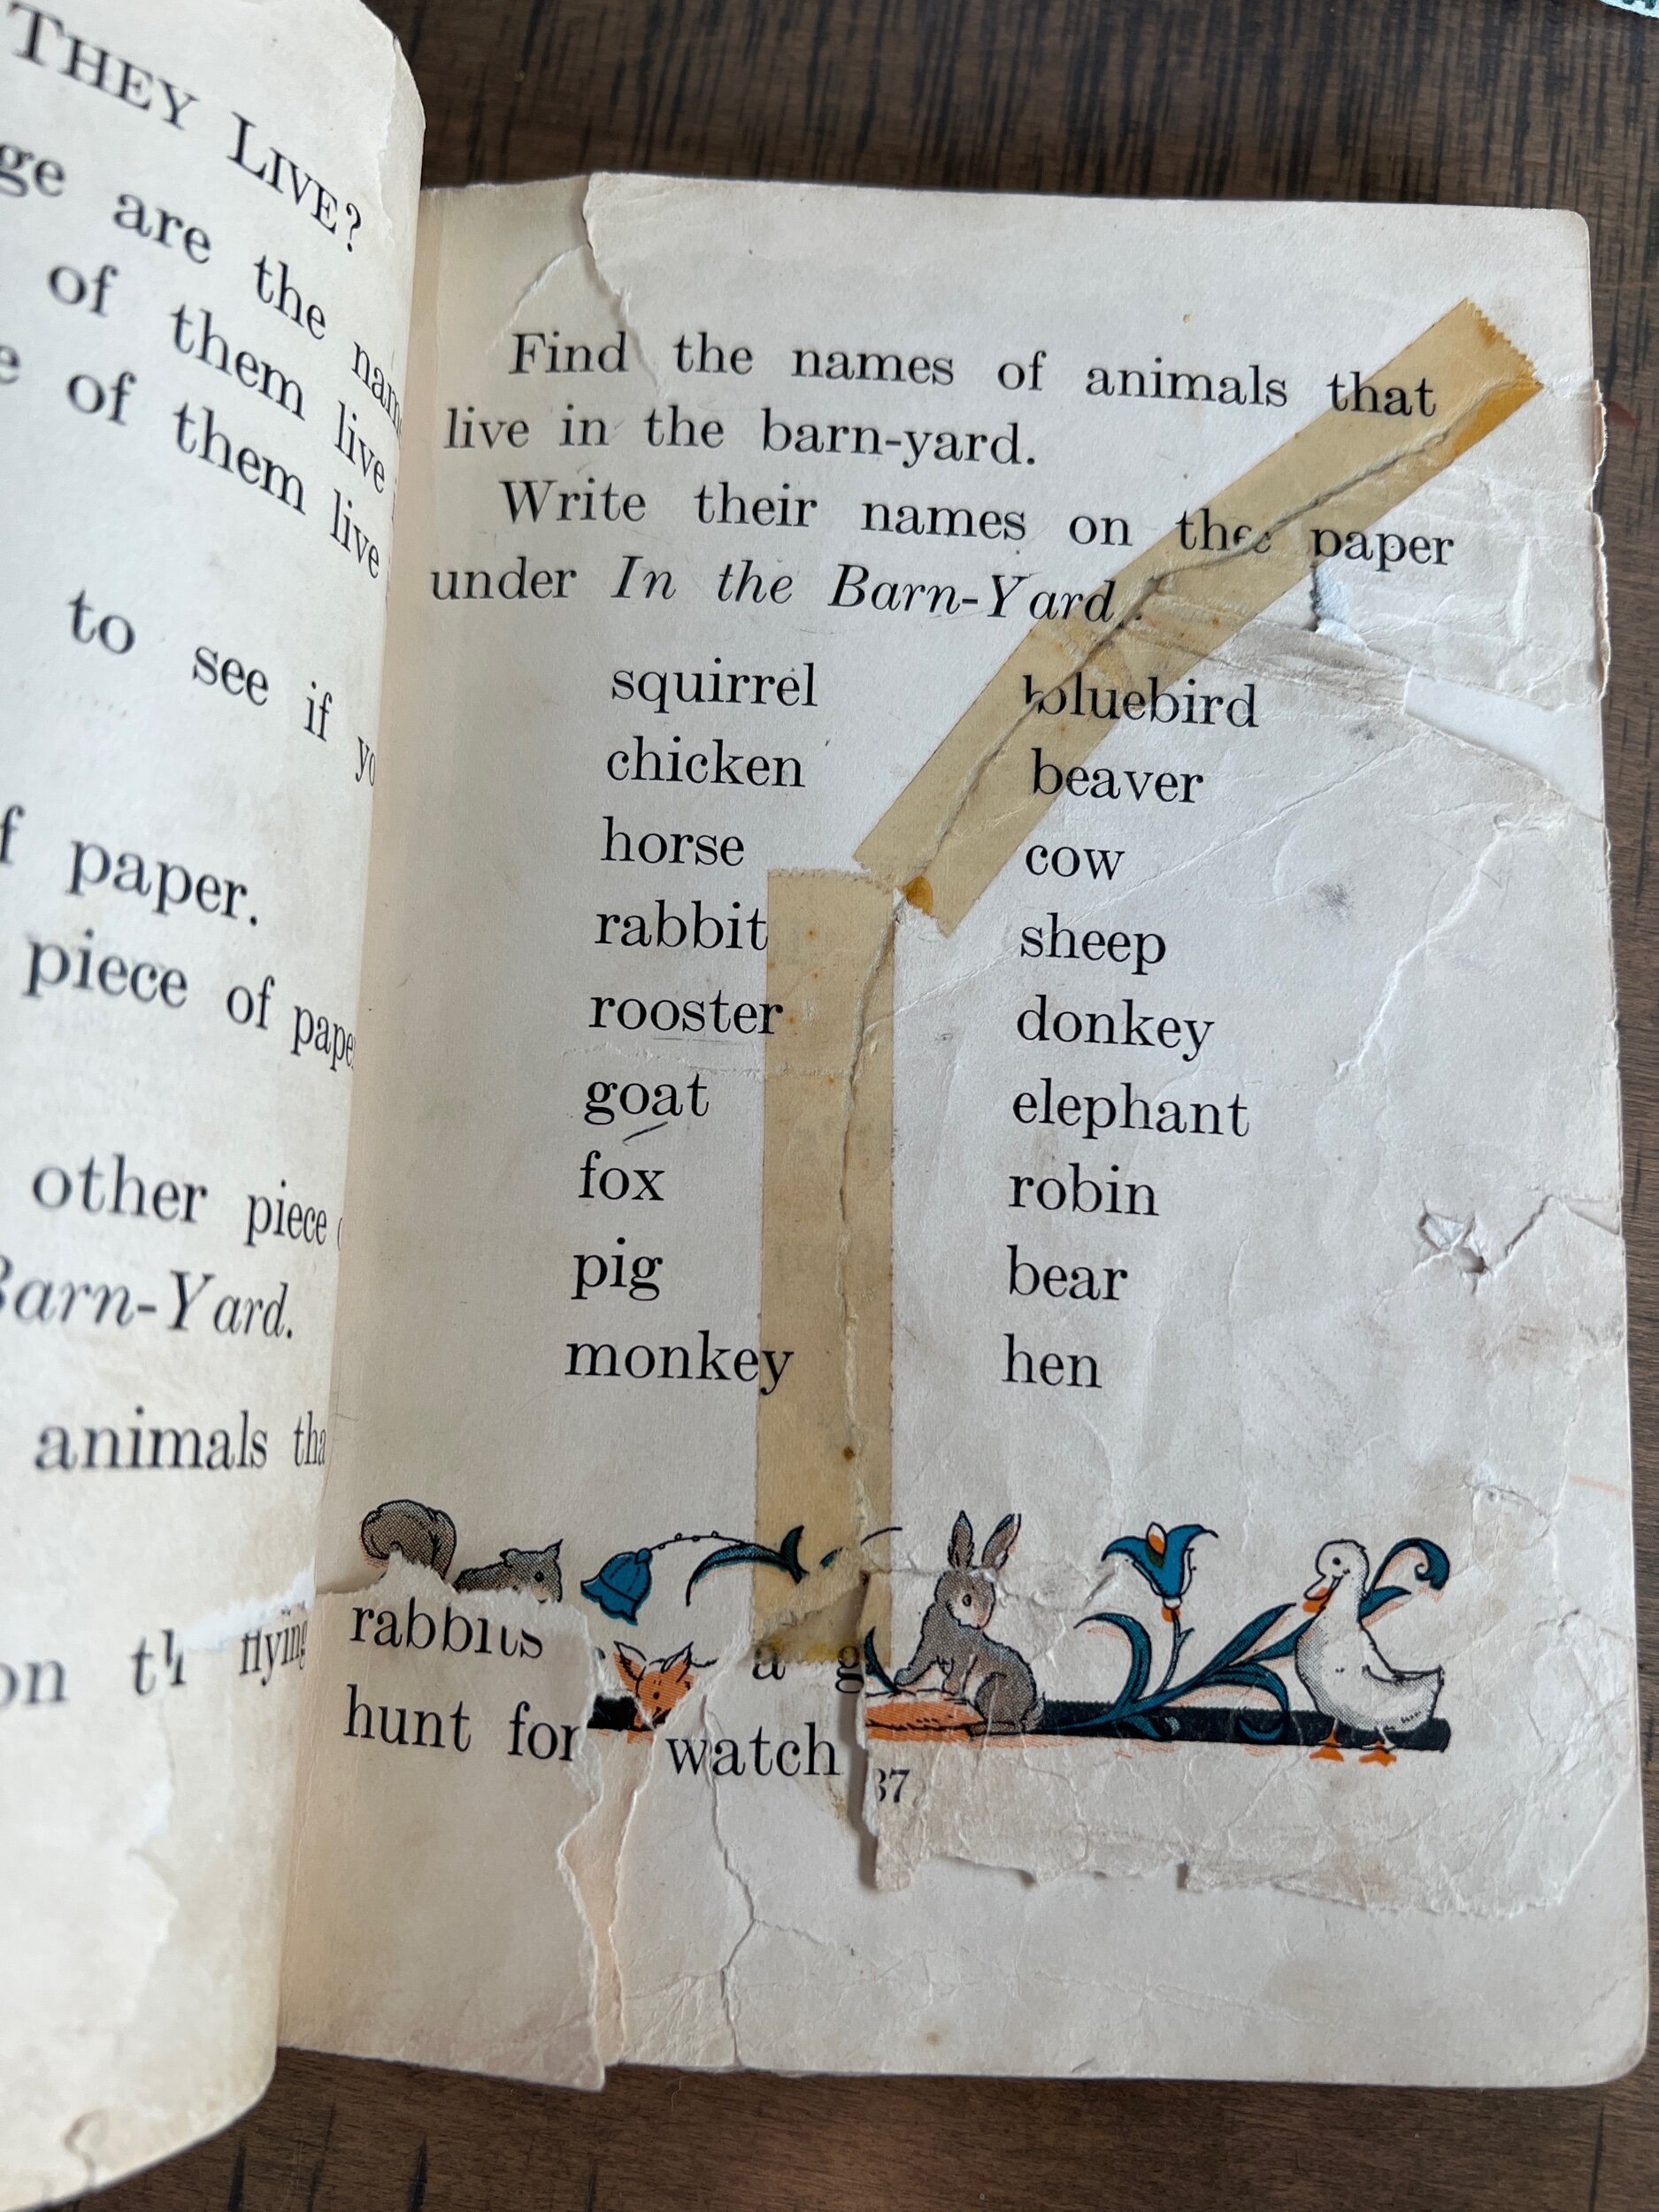 THEY LIVE?
are the
of them live
of them live
to see if
paper.
piece of
other piece
Barn-Yard.
animals
on
flying
Find the names of animals that
live in the barn-yard.
Write their names on the paper
under In the Barn-Yard.
squirrel
chicken
horse
rabbit
rooster
goat
fox
pig
monkey
bluebird
beaver
cow
sheep
donkey
elephant
robin
bear
hen
rabbits a
hunt for watch
37